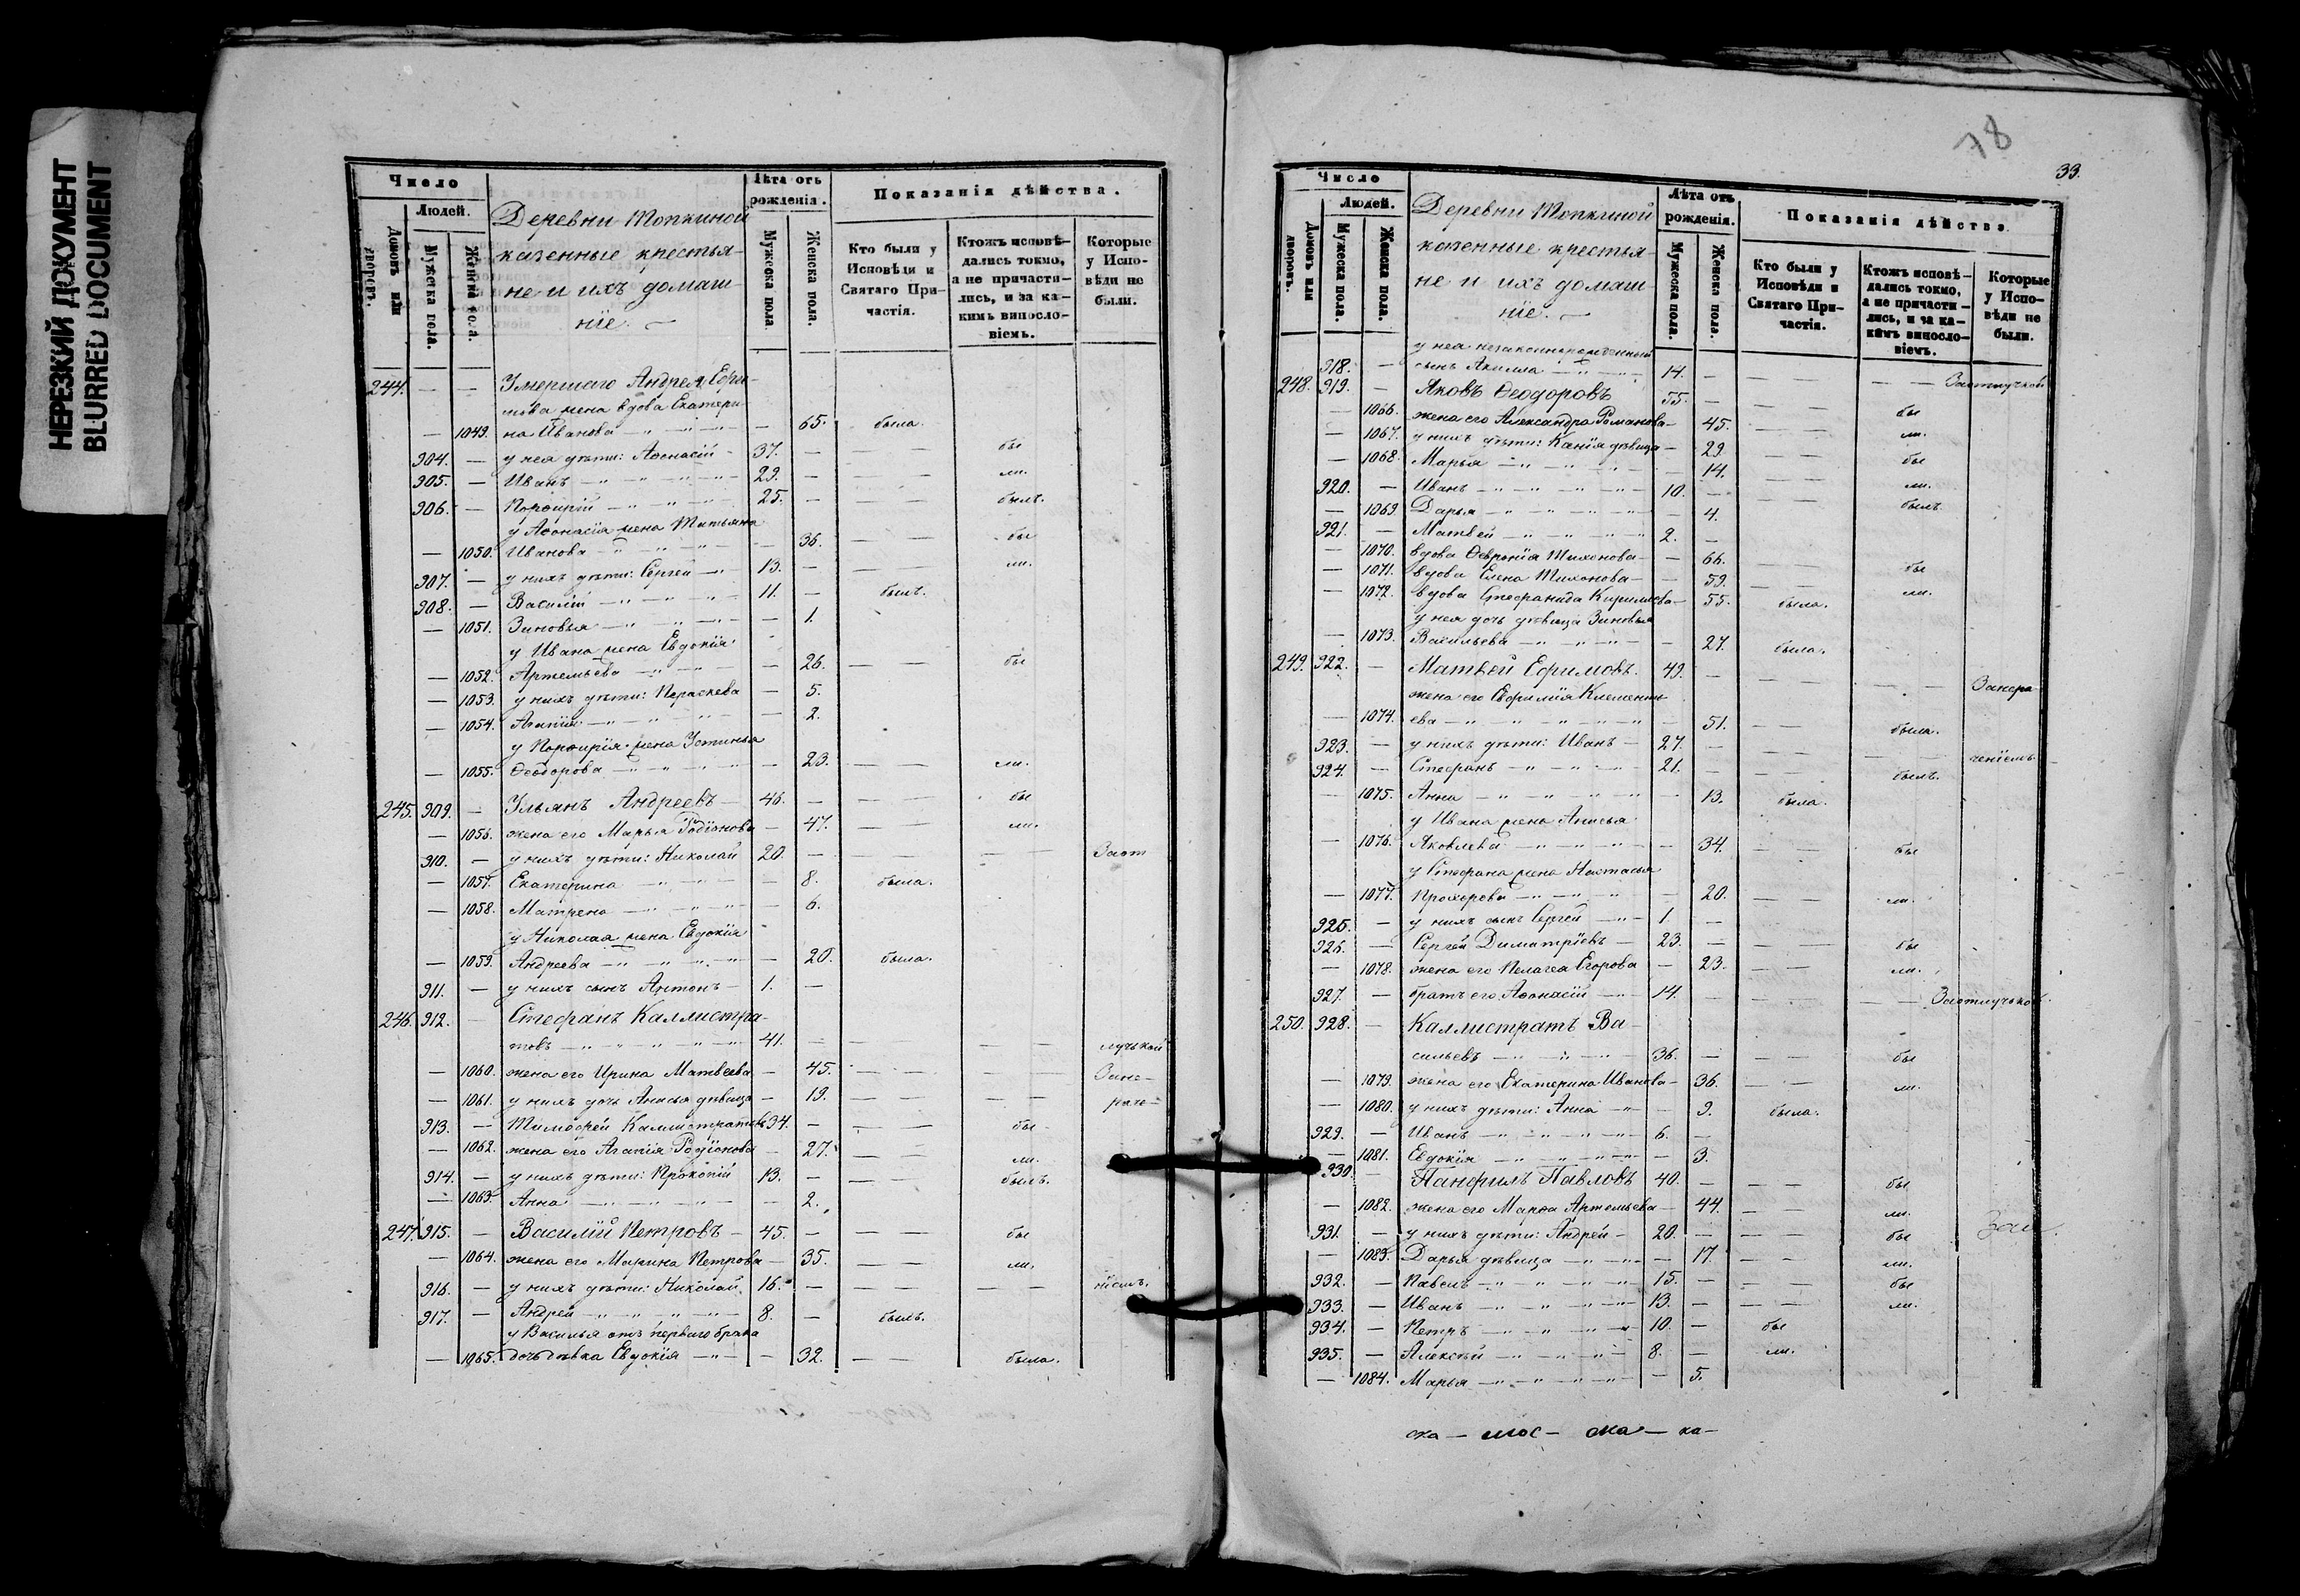 НЕРЕЗКИЙ ДОКУМЕНТ
BLURRED DOCUMENT
Число
Людей.
Домовъ или дворовъ.
Мужеска пола.
Женска пола.
Деревни Топкиной
казенные крестья-
не и ихъ домаш-
ніе. —
Лѣта отъ рожденія.
Мужеска пола
Женска пола.
Показанія дѣйства.
Кто были у Исповѣди и Святаго Причастія.
Ктожъ исповѣ-
дались токмо,
а не причасти-
лись, и за ка-
кимъ винословіемъ.
Которые у Исповѣди не были.
244. — — Умершаго Андрея Ефи-
мова жена вдова Екатери-
— 1049. на Иванова — 65. была.
904. — у нея дѣти: Аѳонасій — 37. — бы
905. — Иванъ — 29. — ли.
906. — Порфирій — 25. — былъ.
у Аѳонасія жена Татьяна
— 1050. Иванова — 36. бы
907. — у нихъ дѣти: Сергей — 13. — ли.
908. — Василій — 11. — былъ.
— 1051. Зиновья — 1.
у Ивана жена Евдокія
— 1052. Артемьева — 26. бы
— 1053. у нихъ дѣти: Параскева — 5.
— 1054. Агапія — 2.
у Порфирія жена Устинья
— 1055. Ѳеодорова — 23. ли.
245. 909. — Ульянъ Андреевъ — 46. — бы
— 1056. жена его Марья Родіонова — 47. ли.
910. — у нихъ дѣти: Николай 20. — Заот
— 1057. Екатерина — 8. была.
— 1058. Матрена — 6.
у Николая жена Евдокія
— 1059. Андреева — 20. была.
911. — у нихъ сынъ Антонъ — 1. —
246. 912. — Стефанъ Каллистра-
товъ — 41. — лучкой
— 1060. жена его Ирина Матвеева — 45. Зане-
— 1061. у нихъ дочь Анисья дѣвица — 19. раче-
913. — Тимофей Каллистратовъ 34. — бы
— 1062. жена его Агапія Родіонова — 27. ли.
914. — у нихъ дѣти: Прокопій 13. — былъ.
— 1063. Анна — 2.
247. 915. — Василій Петровъ — 45. — бы
— 1064. жена его Марина Петрова — 35. ли.
916. — у нихъ дѣти: Николай 16. — ніемъ.
917. — Андрей — 8. — былъ.
у Василья отъ перваго брака
— 1065. дочь дѣвка Евдокія — 32. была.
78
33.
Число
Людей.
Домовъ или дворовъ.
Мужеска пола.
Женска пола.
Деревни Топкиной
казенные крестья-
не и ихъ домаш-
ніе. —
Лѣта отъ рожденія.
Мужеска пола.
Женска пола.
Показанія дѣйства.
Кто были у Исповѣди и Святаго Причастія.
Ктожъ исповѣ-
дались токмо,
а не причасти-
лись, и за ка-
кимъ винословіемъ.
Которые у Исповѣди не были.
у нея незаконнорожденный
918. — сынъ Акилла — 14. —
248. 919. — Яковъ Ѳеодоровъ 55. — Заотлучкой
— 1066. жена его Александра Романова — 45. бы
— 1067. у нихъ дѣти: дѣвица — 29. ли.
— 1068. Марья — 14. бы
920. — Иванъ — 10. — ли.
— 1069. Дарья — 4. былъ
921. — Матвей — 2. —
— 1070. вдова Ѳевронія Тихонова — 66.
— 1071. вдова Елена Тихонова — 59. бы
— 1072. вдова Стефанида Кирилева — 55. была. ли.
у нея дочь дѣвица Зиновья
— 1073. Васильева — 27. была.
249. 922. — Матвей Ефимовъ. 49. — Занера
жена его Евфимія Климентьева
— 1074. ева — 51. была.
923. — у нихъ дѣти: Иванъ — 27. —
924. — Стефанъ — 21. — былъ. ченіемъ
— 1075. Анна — 13. была.
у Ивана жена Анисья
— 1076. Яковлева — 34. бы
у Стефана жена Настасья
— 1077. Прохорова — 20. ли.
925. — у нихъ сынъ Сергей — 1. —
926. — Сергей Димитріевъ — 23. — бы
— 1078. жена его Пелагея Егорова — 23. ли.
927. — братъ его Аѳонасій — 14. — Заотлучкой
250. 928. — Каллистратъ Ва-
сильевъ — 36. — бы
— 1079. жена его Екатерина Иванова — 36. ли.
— 1080. у нихъ дѣти: Анна — 9. была.
929. — Иванъ — 6. —
— 1081. Евдокія — 3.
930. — Панфилъ Павловъ 40. — бы
— 1082. жена его Марѳа Артемьева — 44. ли.
931. — у нихъ дѣти: Андрей — 20. — бы
— 1083. Дарья дѣвица — 17. ли.
932. — Павелъ — 15. — бы
933. — Иванъ — 13. — ли.
934. — Петръ — 10. — бы
935. — Алексѣй — 8. — ли.
— 1084. Марья — 5.